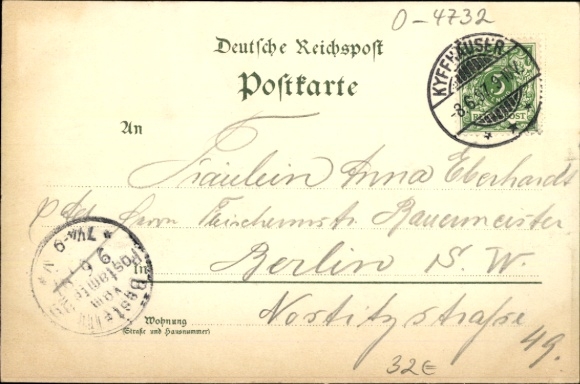 O-4732
Deutsche Reichspost
Postkarte
KYFFHÄUSER
8.6.97. 9-10V.
REICHSPOST
An
Fräulein Anna Eberhardt
p. Adr. Herrn Tischlermstr. Bauermeister
In Berlin S. W.
Nostitzstraße
49.
Wohnung
(Straße und Hausnummer)
Bestellt
vom
Postamte
9 6
32€